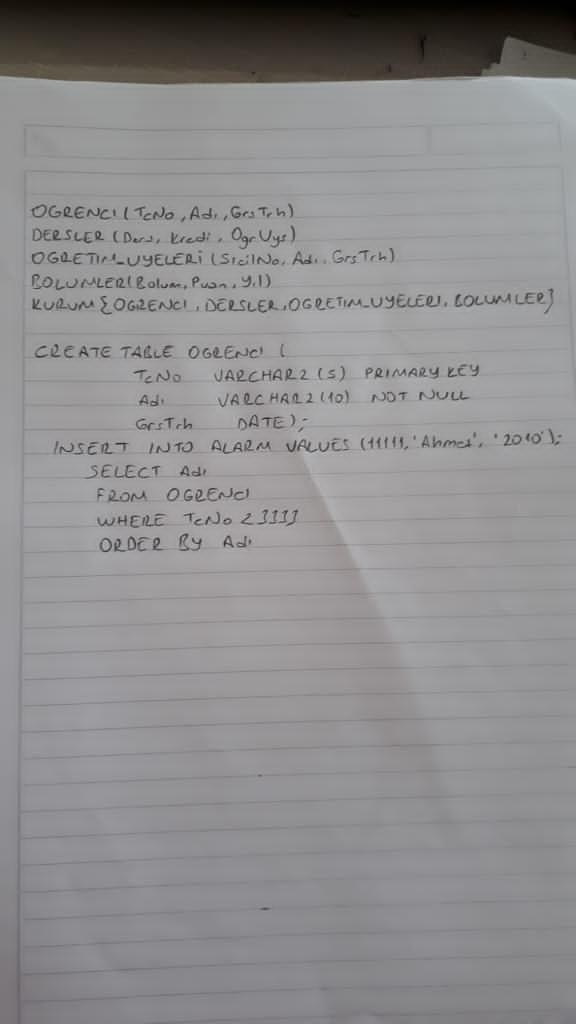 OGRENCI (TcNo, Adı, GrsTrh)
DERSLER (Ders, Kredi, OgrUys)
OGRETIM_UYELERİ (SicilNo, Adı, GrsTrh)
BOLUMLER (Bolum, Puan, Yıl)
KURUM {OGRENCI, DERSLER, OGRETIM_UYELERI, BOLUMLER}
CREATE TABLE OGRENCI (
TcNo VARCHAR2 (5) PRIMARY KEY
Adı VARCHAR2 (10) NOT NULL
GrsTrh DATE);
INSERT INTO ALARM VALUES (11111, 'Ahmet', '2010');
SELECT Adı
FROM OGRENCI
WHERE TcNo
ORDER BY Adı